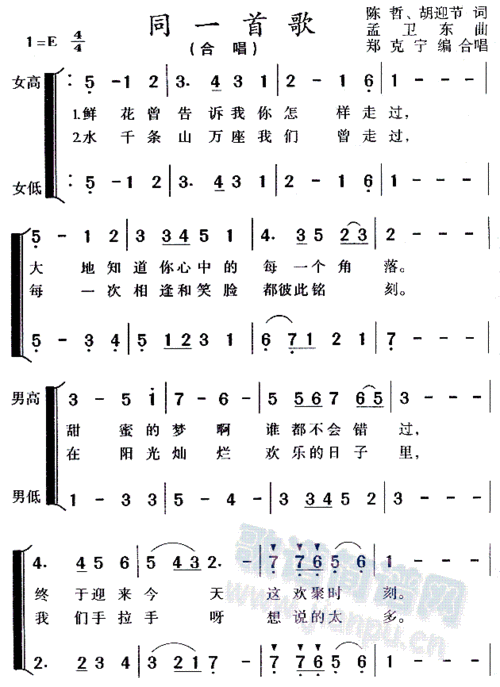 同一首歌
(合唱)
1=E 4/4
陈哲、胡迎节 词
孟卫东 曲
郑克宁 编合唱
女高 : 5 - 1 2 | 3. 4 3 1 | 2 - 1 6 | 1 - - - |
1.鲜花曾告诉我你怎样走过,
2.水千条山万座我们曾走过,
女低 : 5 - 1 2 | 3. 4 3 1 | 2 - 1 6 | 1 - - - |
5 - 1 2 | 3 3 4 5 1 | 4. 3 5 2 3 | 2 - - - |
大地知道你心中的每一个角落。
每一次相逢和笑脸都彼此铭刻。
5 - 3 4 | 5 1 2 3 1 | 6 7 1 2 1 | 7 - - - |
男高 3 - 5 i | 7 - 6 - | 5 5 6 7 6 5 | 3 - - - |
甜蜜的梦啊谁都不会错过,
在阳光灿烂欢乐的日子里,
男低 1 - 3 3 | 5 - 4 - | 3 3 4 5 2 | 3 - - - |
4. 4 5 6 | 5 4 3 2. | 7 7 6 5 5 | 1 - - - |
终于迎来今天这欢聚时刻。
我们手拉手呀想说的太多。
2. 2 3 4 | 3 2 1 7 - | 7 7 6 5 5 | 1 - - - |